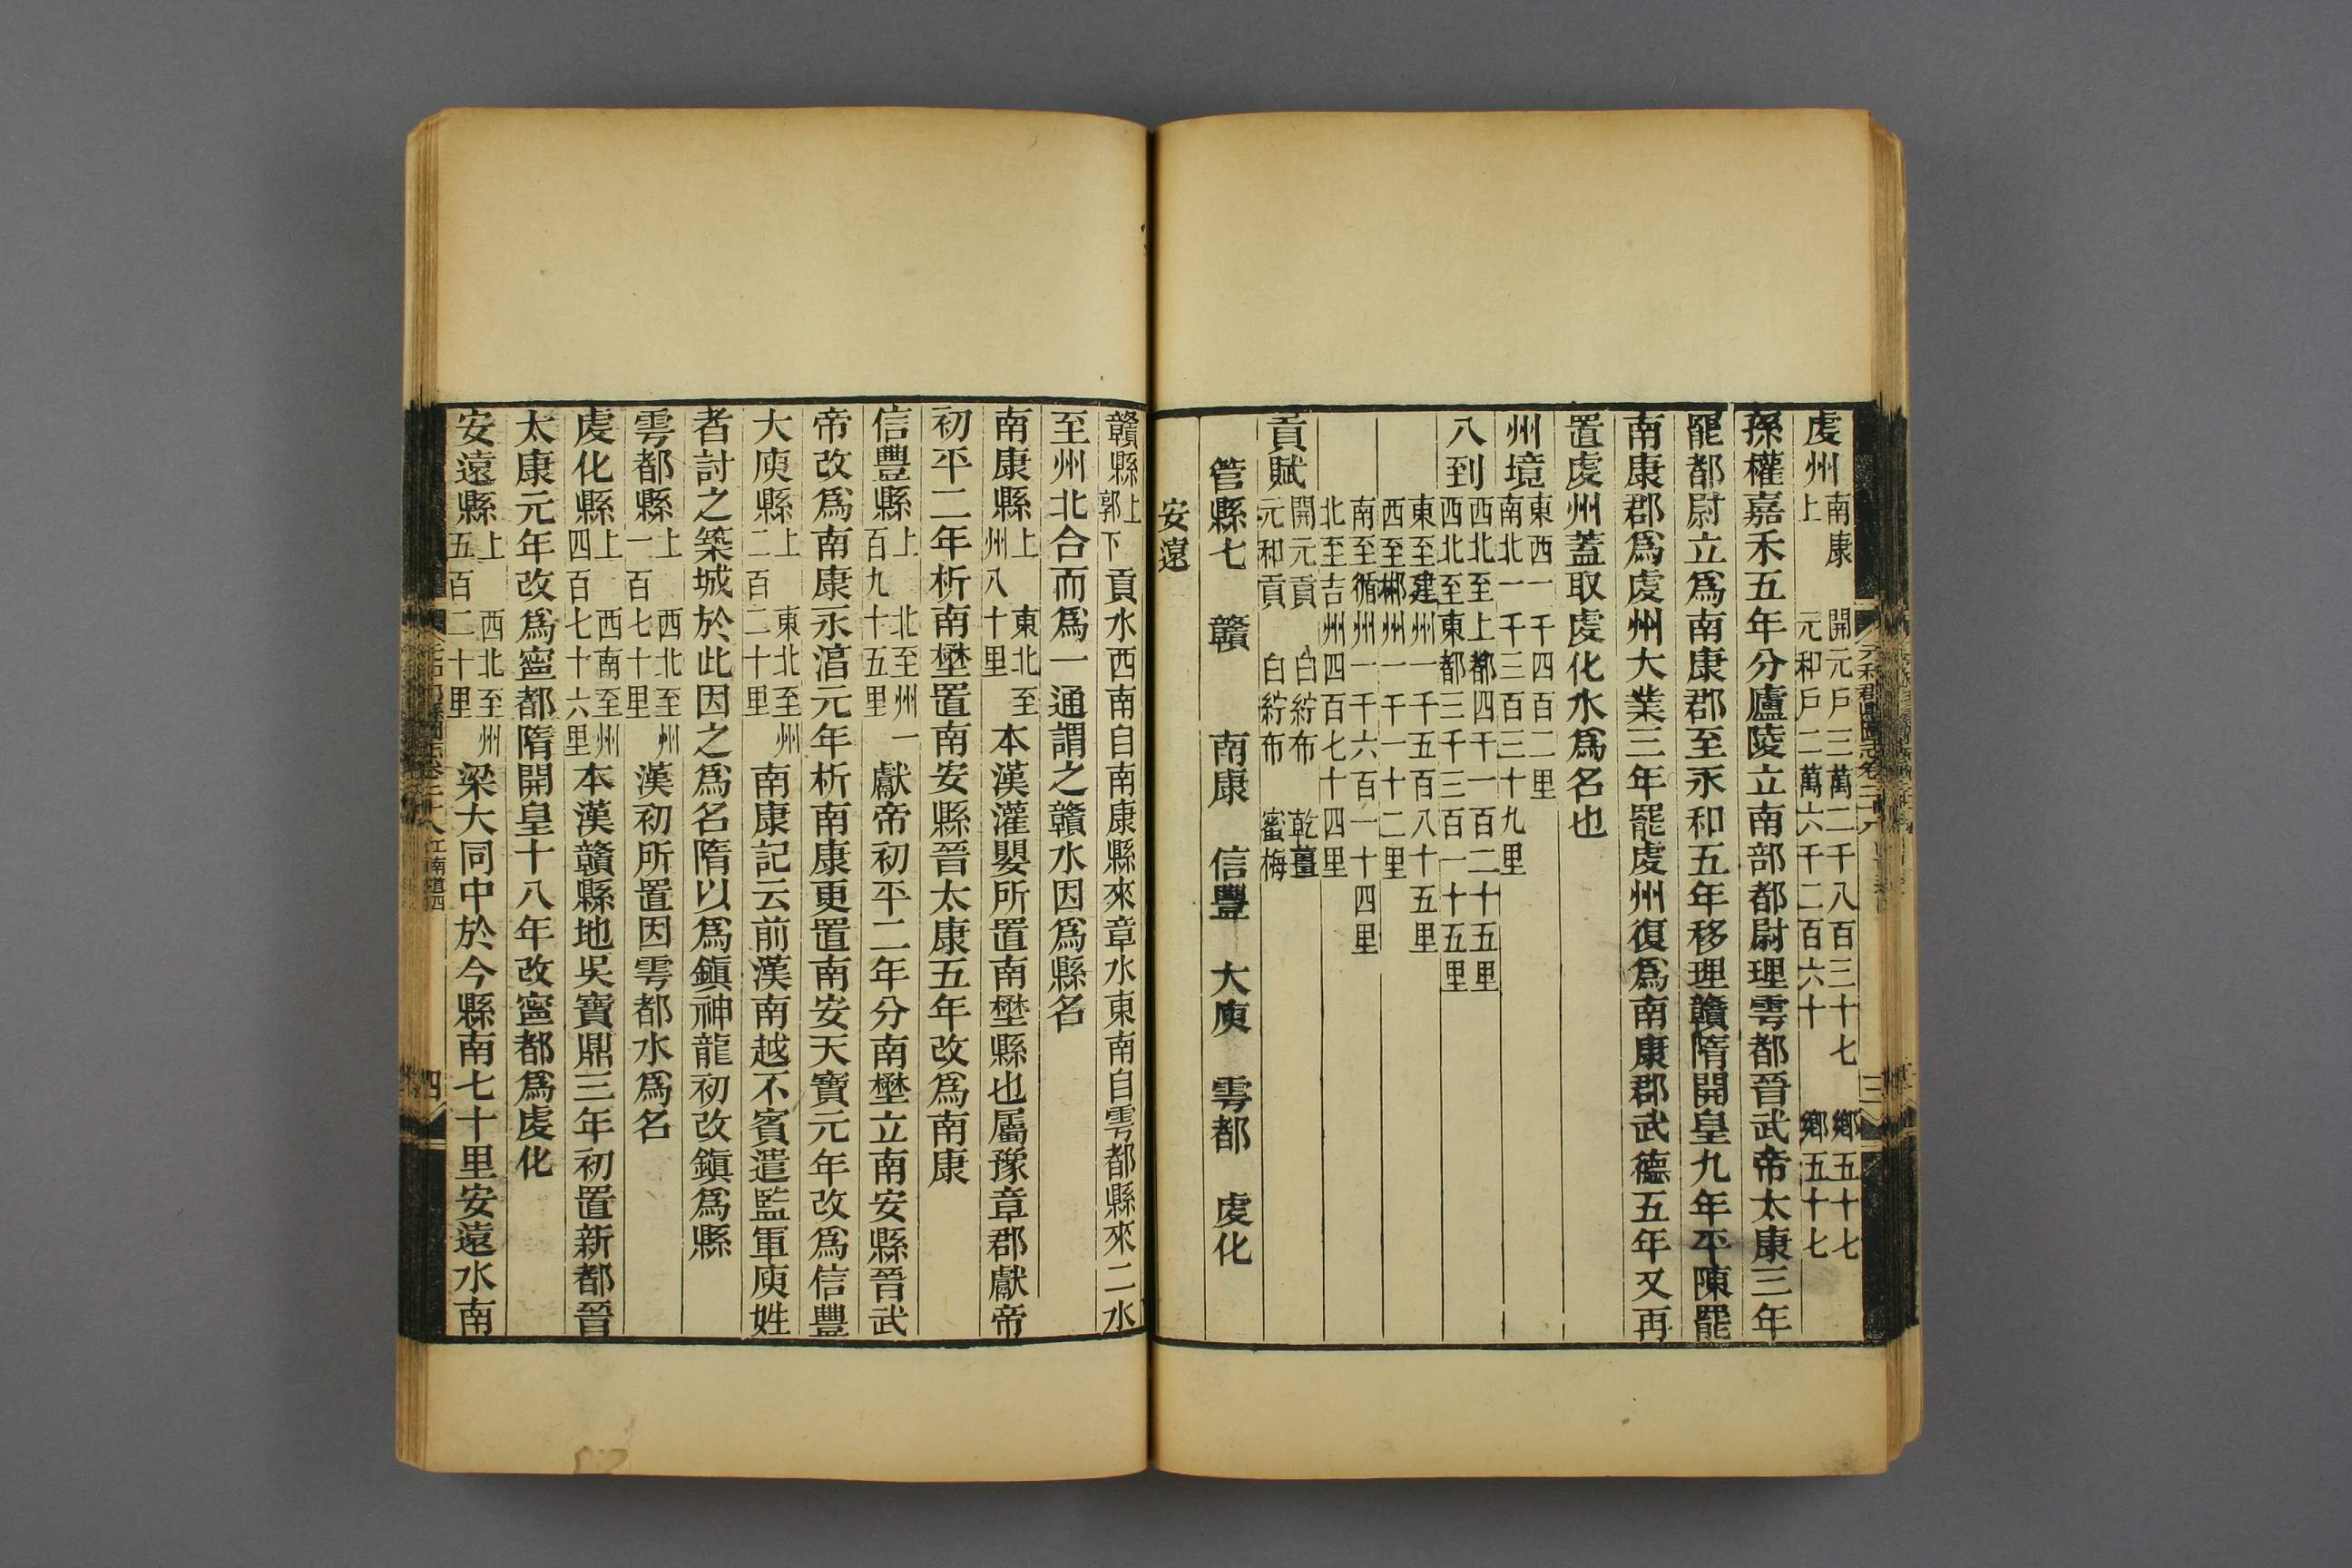 虔州南康上 開元戶三萬二千八百三十七 鄉五十七 元和戶二萬六千二百六十 鄉五十七
孫權嘉禾五年分廬陵立南部都尉理雩都晉武帝太康三年
罷都尉立爲南康郡至永和五年移理贛隋開皇九年平陳罷
南康郡爲虔州大業三年罷虔州復爲南康郡武德五年又再
置虔州蓋取虔化水爲名也
州境東西一千四百二里 南北一千三百三十九里
八到西北至上都四千一百二十五里 西北至東都三千三百一十五里
東至建州一千五百八十五里 西至郴州一千一十二里
南至循州一千六百一十四里 北至吉州四百七十四里
貢賦開元貢 白紵布 乾薑 元和貢 白紵布 蜜梅
管縣七 贛 南康 信豐 大庾 雩都 虔化
安遠
贛縣上 郭下 貢水西南自南康縣來章水東南自雩都縣來二水
至州北合而爲一通謂之贛水因爲縣名
南康縣上 東北至州八十里 本漢灌嬰所置南壄縣也屬豫章郡獻帝
初平二年析南壄置南安縣晉太康五年改爲南康
信豐縣上 北至州一百九十五里 獻帝初平二年分南壄立南安縣晉武
帝改爲南康永淳元年析南康更置南安天寶元年改爲信豐
大庾縣上 東北至州二百二十里 南康記云前漢南越不賓遣監軍庾姓
者討之築城於此因之爲名隋以爲鎮神龍初改鎮爲縣
雩都縣上 西北至州一百七十里 漢初所置因雩都水爲名
虔化縣上 西南至州四百七十六里 本漢贛縣地吳寶鼎三年初置新都晉
太康元年改爲寧都隋開皇十八年改寧都爲虔化
安遠縣上 西北至州五百二十里 梁大同中於今縣南七十里安遠水南